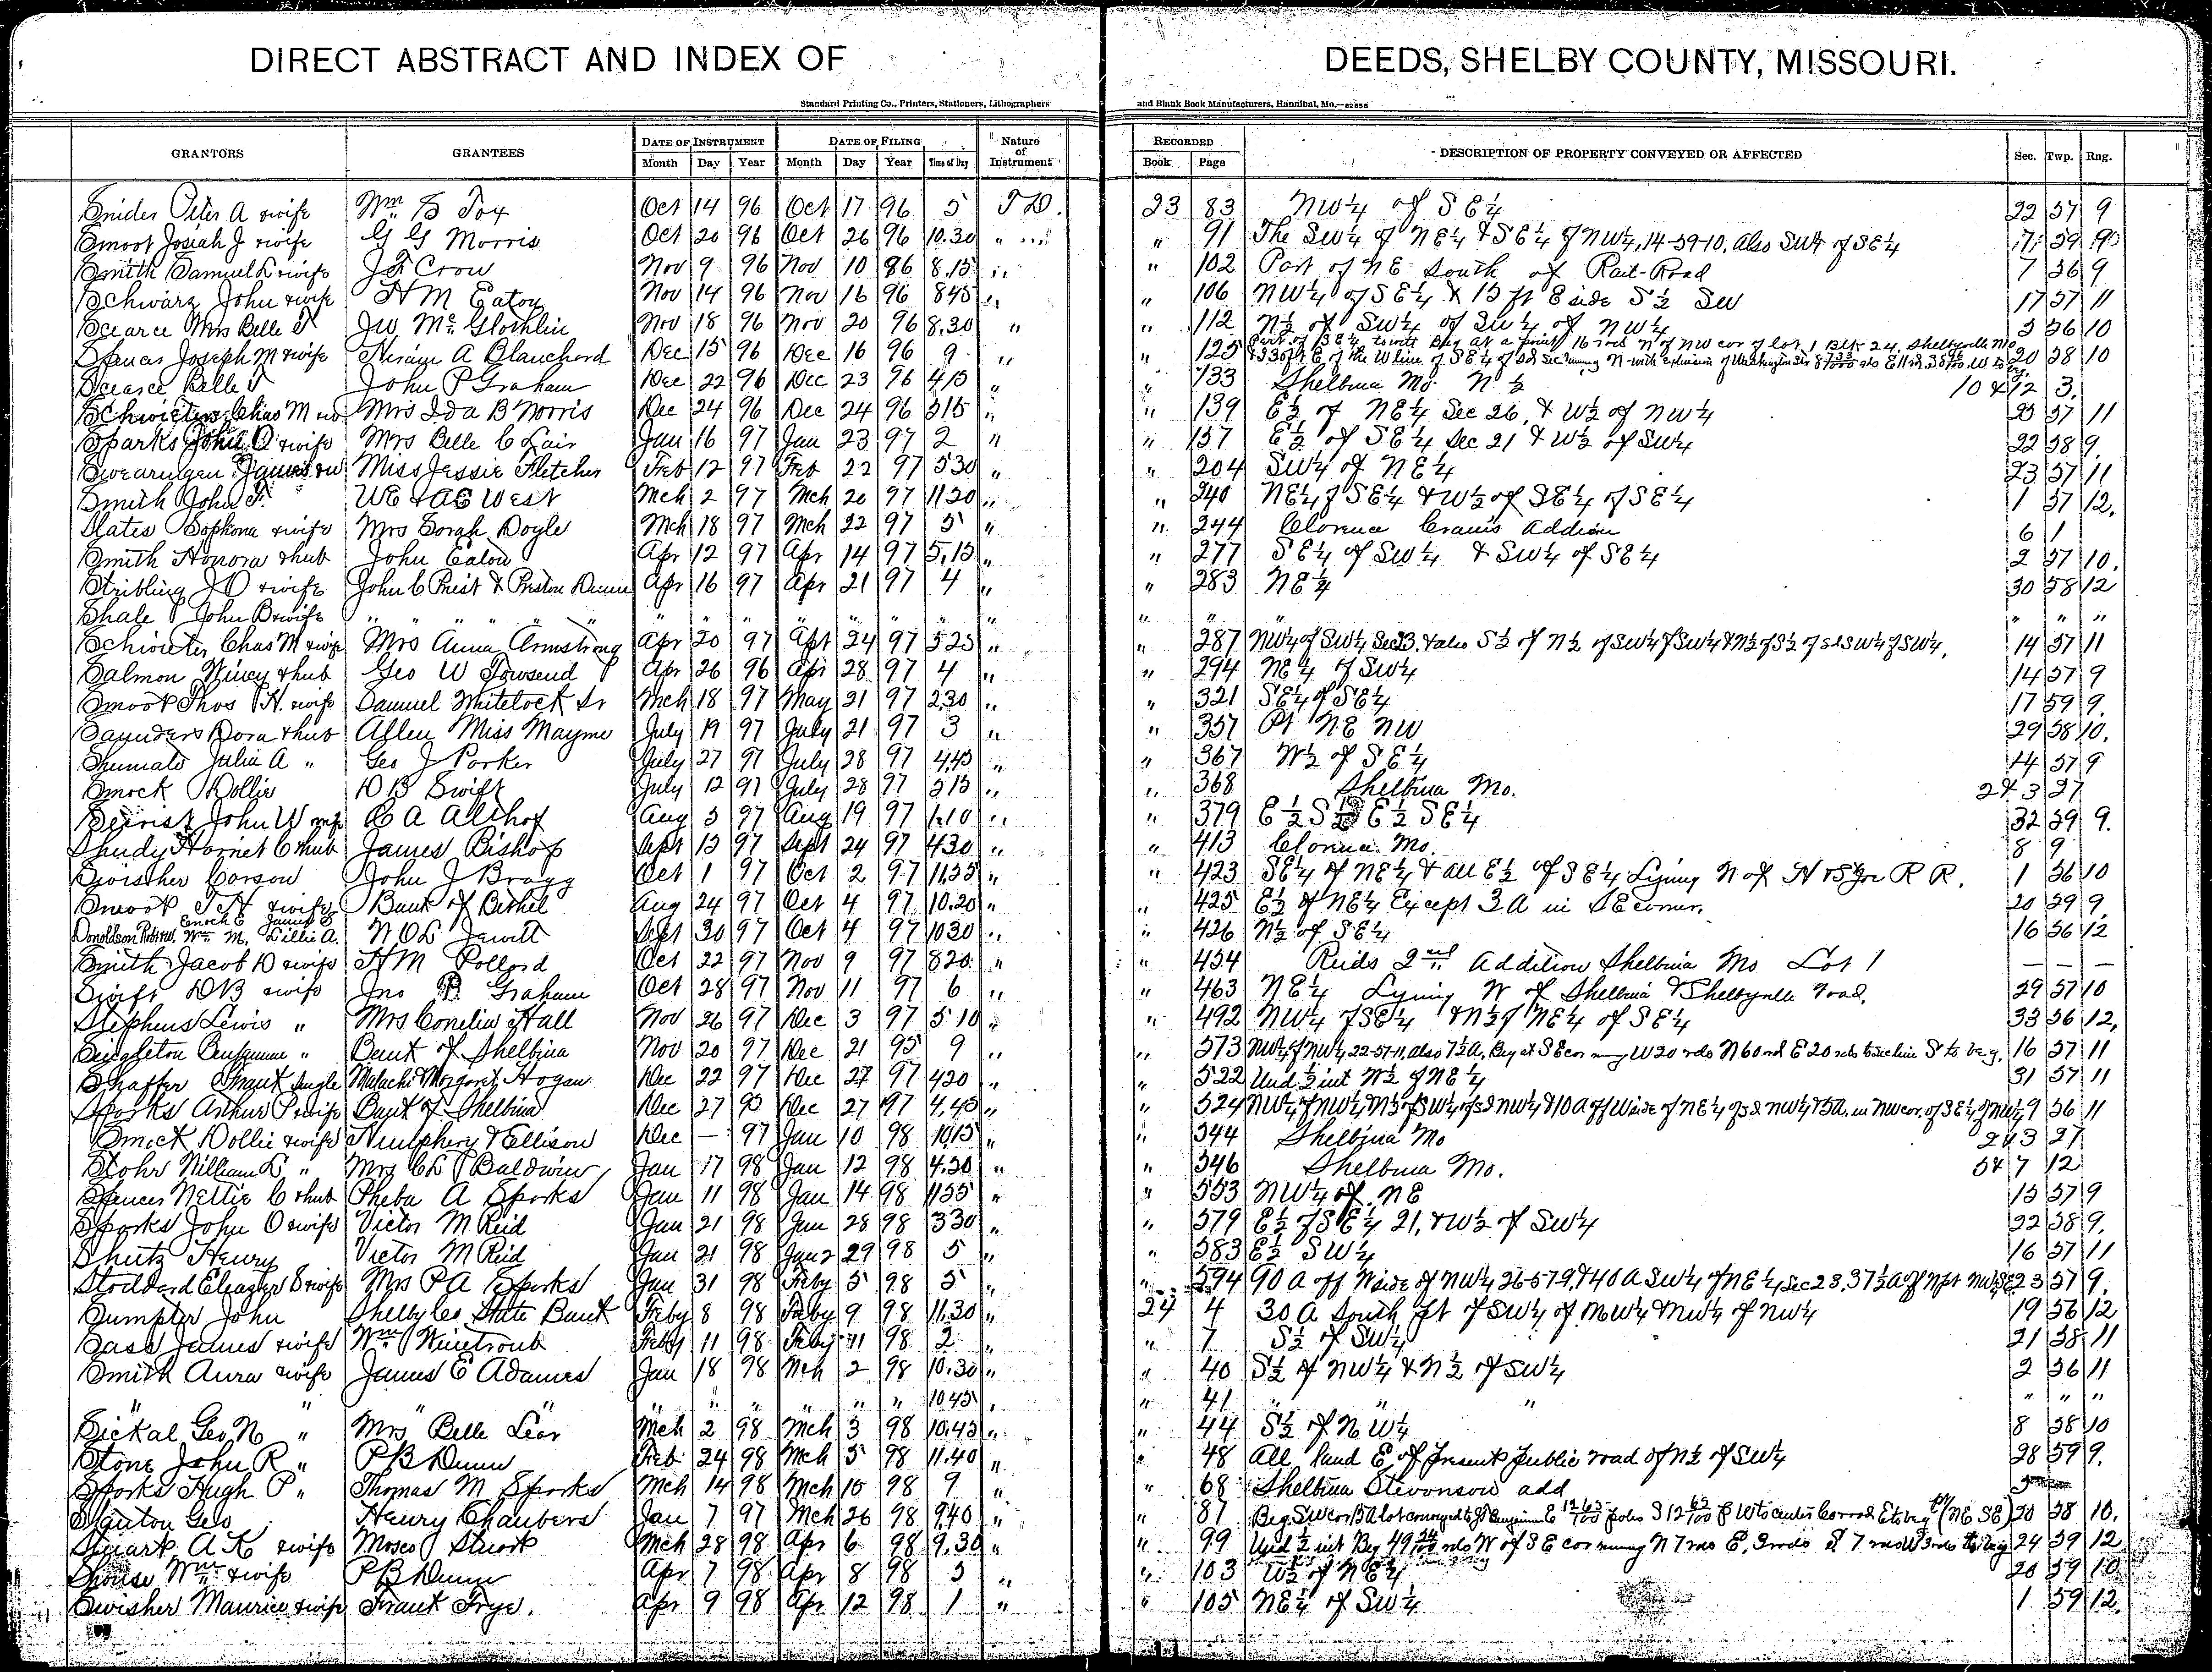 DIRECT ABSTRACT AND INDEX OF DEEDS, SHELBY COUNTY, MISSOURI.
Standard Printing Co., Printers, Stationers, Lithographers and Blank Book Manufacturers, Hannibal, Mo.
GRANTORS GRANTEES DATE OF INSTRUMENT DATE OF FILING Nature of Instrument RECORDED DESCRIPTION OF PROPERTY CONVEYED OR AFFECTED Sec. Twp. Rng.
Month Day Year Month Day Year Time of Day Book Page
Snider Peter A & wife Wm B Fox Oct 14 96 Oct 17 96 5 T D. 23 83 NW¼ of SE¼ 22 57 9
Smoot Josiah J & wife G G Morris Oct 20 96 Oct 26 96 10.30 " " 91 The SW¼ of NE¼ & SE¼ of NW¼, 14-59-10, Also SW¼ of SE¼ 59
Smith Samuel L & wife J F Crow Nov 9 96 Nov 10 96 8.15 " " 102 Part of NE South of Rail-Road 7 56 9
Schwarz John & wife H M Eaton Nov 14 96 Nov 16 96 845 " " 106 NW¼ of SE¼ & 15 ft E side S½ SW 17 57 11
Scearce Mrs Belle T J W McGlothlin Nov 18 96 Nov 20 96 8.30 " " 112 N½ of SW¼ of SW¼ of NW¼ 3 56 10
Spencer Joseph M & wife Hiram A Blanchard Dec 15 96 Dec 16 96 9 " " 125 Part of SE¼ towit Beg at a point 16 rods N of NW cor of lot 1 Blk 24, Shelbyville Mo 20 58 10
Scearce Belle T John P Graham Dec 22 96 Dec 23 96 415 " " 133 Shelbina Mo. N½ 10 & 12 3.
Schwieter Chas M & w Mrs Ida B Norris Dec 24 96 Dec 24 96 315 " " 139 E½ of NE¼ Sec 26, & W½ of NW¼ 25 57 11
Sparks John O & wife Mrs Belle C Lair Jan 16 97 Jan 23 97 2 " " 157 E½ of SE¼ Sec 21 & W½ of SW¼ 22 58 9.
Swearingen James & w Miss Jessie Fletcher Feb 12 97 Feb 22 97 530 " " 204 SW¼ of NE¼ 23 57 11
Smith John F. WE & AE West Mch 2 97 Mch 20 97 1120 " " 240 NE¼ of SE¼ & W½ of SE¼ of SE¼ 1 57 12.
Slates Sophona & wife Mrs Sarah Doyle Mch 18 97 Mch 22 97 5 " " 244 Clarence Crains Addition 6 1
Smith Honora & hub John Eaton Apr 12 97 Apr 14 97 5.15 " " 277 SE¼ of SW¼ & SW¼ of SE¼ 2 57 10.
Stribling J O & wife John C Priest & Preston Dunn Apr 16 97 Apr 21 97 4 " " 283 NE¼ 30 58 12
Shale John B & wife " " " " " " " " " " " " " " "
Schwieter Chas M & wife Mrs Anna Armstrong Apr 20 97 Apr 24 97 525 " " 287 NW¼ of SW¼ Sec 13. & also S½ of N½ of SW¼ of SW¼ & N½ of S½ of sd SW¼ of SW¼. 14 57 11
Salmon Nincy & hub Geo W Towsend Apr 26 96 Apr 28 97 4 " " 294 NE¼ of SW¼ 14 57 9
Smoot Thos H. & wife Samuel Whitelock Sr Mch 18 97 May 21 97 230 " " 321 SE¼ of SE¼ 17 59 9.
Saunders Dora & hub Allen Miss Mayme July 19 97 July 21 97 3 " " 357 Pt NE NW 29 58 10.
Shumate Julia A " Geo J Parker July 27 97 July 28 97 4.45 " " 367 W½ of SE¼ 14 57 9
Smock Dollie D B Swift July 12 97 July 28 97 315 " " 368 Shelbina Mo. 24 3 27
John W & wife C A Althof Aug 3 97 Aug 19 97 1.10 " " 379 E½ E½ SE¼ 32 59 9.
Shudy Harriet C & hub James Bishop Sept 13 97 Sept 24 97 430 " " 413 Clarence Mo. 8 9
Swisher Carson John J Bragg Oct 1 97 Oct 2 97 11.25 " " 423 SE¼ of NE¼ & all E½ of SE¼ Lying N of H & St Joe R R. 1 56 10
Smoot T H & wife Bank of Bethel Aug 24 97 Oct 4 97 10.20 " " 425 E½ of NE¼ Except 3A in SE corner. 20 59 9.
Donoldson Robt W. Wm M, Enoch E James S Lillie A. N O L Jewitt Sept 30 97 Oct 4 97 1030 " " 426 N½ of SE¼ 16 56 12
Smith Jacob D & wife H M Pollard Oct 22 97 Nov 9 97 820 " " 454 Reids 2nd Addition Shelbina Mo Lot 1 — — —
Swift D B & wife Jno P Graham Oct 28 97 Nov 11 97 6 " " 463 NE¼ Lying W of Shelbina & Shelbyville road. 29 57 10
Stephens Lewis " Mrs Cornelia Hall Nov 26 97 Dec 3 97 5 10 " " 492 NW¼ of SE¼ & N½ of NE¼ of SE¼ 33 56 12.
Singleton Benjamin " Bank of Shelbina Nov 20 97 Dec 21 95 9 " " 513 NW¼ of NW¼ 22-57-11, Also 7½A, Beg at SE cor runing W 20 rds N 60 rd E 20 rds to sec line S to beg. 16 57 11
Shaffer Grant Single Malachi & Margaret Hogan Dec 22 97 Dec 27 97 420 " " 522 Und ½ int W½ of NE¼ 31 57 11
Sparks Arthur P & wife Bank of Shelbina Dec 27 95 Dec 27 97 4.45 " " 524 NW¼ of NW¼ N½ of SW¼ of sd NW¼ & 10A off W side of NE¼ of sd NW¼ & 5A. in NW cor. of SE¼ of NW¼ 9 56 11
Smock Dollie & wife Humphery & Ellison Dec — 97 Jan 10 98 1015 " " 544 Shelbina Mo 24 3 27
Stohr William L " Mrs C L P Baldwin Jan 17 98 Jan 12 98 4.30 " " 546 Shelbina Mo. 54 7 12
Spencer Nettie C & hub Pheba A Sparks Jan 11 98 Jan 14 98 1155 " " 553 NW¼ of NE 15 57 9
Sparks John O & wife Victor M Reid Jan 21 98 Jan 28 98 330 " " 579 E½ of SE¼ 21, & W½ of SW¼ 22 58 9.
Shutz Henry Victor M Reid Jan 21 98 Jan 29 98 5 " " 583 E½ SW¼ 16 57 11
Stoddard Eleazer S & wife Mrs P A Sparks Jan 31 98 Feby 5 98 5 " " 594 90 A off N side of NW¼ 26-57-9, & 40 A SW¼ of NE¼ Sec 23, 37½A 23 57 9.
Sumpter John Shelby Co State Bank Feby 8 98 Feby 9 98 11.30 " 24 4 30 A South Pt of SW¼ of NW¼ & NW¼ of NW¼ 19 56 12
Sass James & wife Wm Winetroub Feby 11 98 Feby 11 98 2 " " 7 S½ of SW¼ 21 58 11
Smith Aura & wife James E Adames Jan 18 98 Mch 2 98 10.30 " " 40 S½ of NW¼ & N½ of SW¼ 2 56 11
" " " " " " " " 10.45 " " 41 " " " " " "
Sickal Geo N " Mrs Belle Lear Mch 2 98 Mch 3 98 10.45 " " 44 S½ of NW¼ 8 58 10
Stone John R " P B Dunn Feb 24 98 Mch 5 98 11.40 " " 48 All land E of Present Public road of N½ of SW¼ 28 59 9.
Sparks Hugh P " Thomas M Sparks Mch 14 98 Mch 15 98 9 " " 68 Shelbina Stevenson add
Stanton Geo Henry Chanbers Jan 7 97 Mch 26 98 9.40 " " 87 Beg. SW cor 5A lot conveyed to Benjamin E 12 65/100 poles S 12 65/100 P W to center Co road Etc beg (NE SE) 20 58 10.
Stuart A K & wife Mosco Stuart Mch 28 98 Apr 6 98 9.30 " " 99 Und ½ int Beg 49 rds W of SE cor runing N 7 rds E, 3 rods S 7 rods W 3 rds to beg 24 59 12
Shouse Wm & wife P B Dunn Apr 7 98 Apr 8 98 5 " " 103 W½ of NE¼ 20 59 10
Swisher Maurice & wife Frank Frye. Apr 9 98 Apr 12 98 1 " " 105 NE¼ of SW¼ 1 59 12.